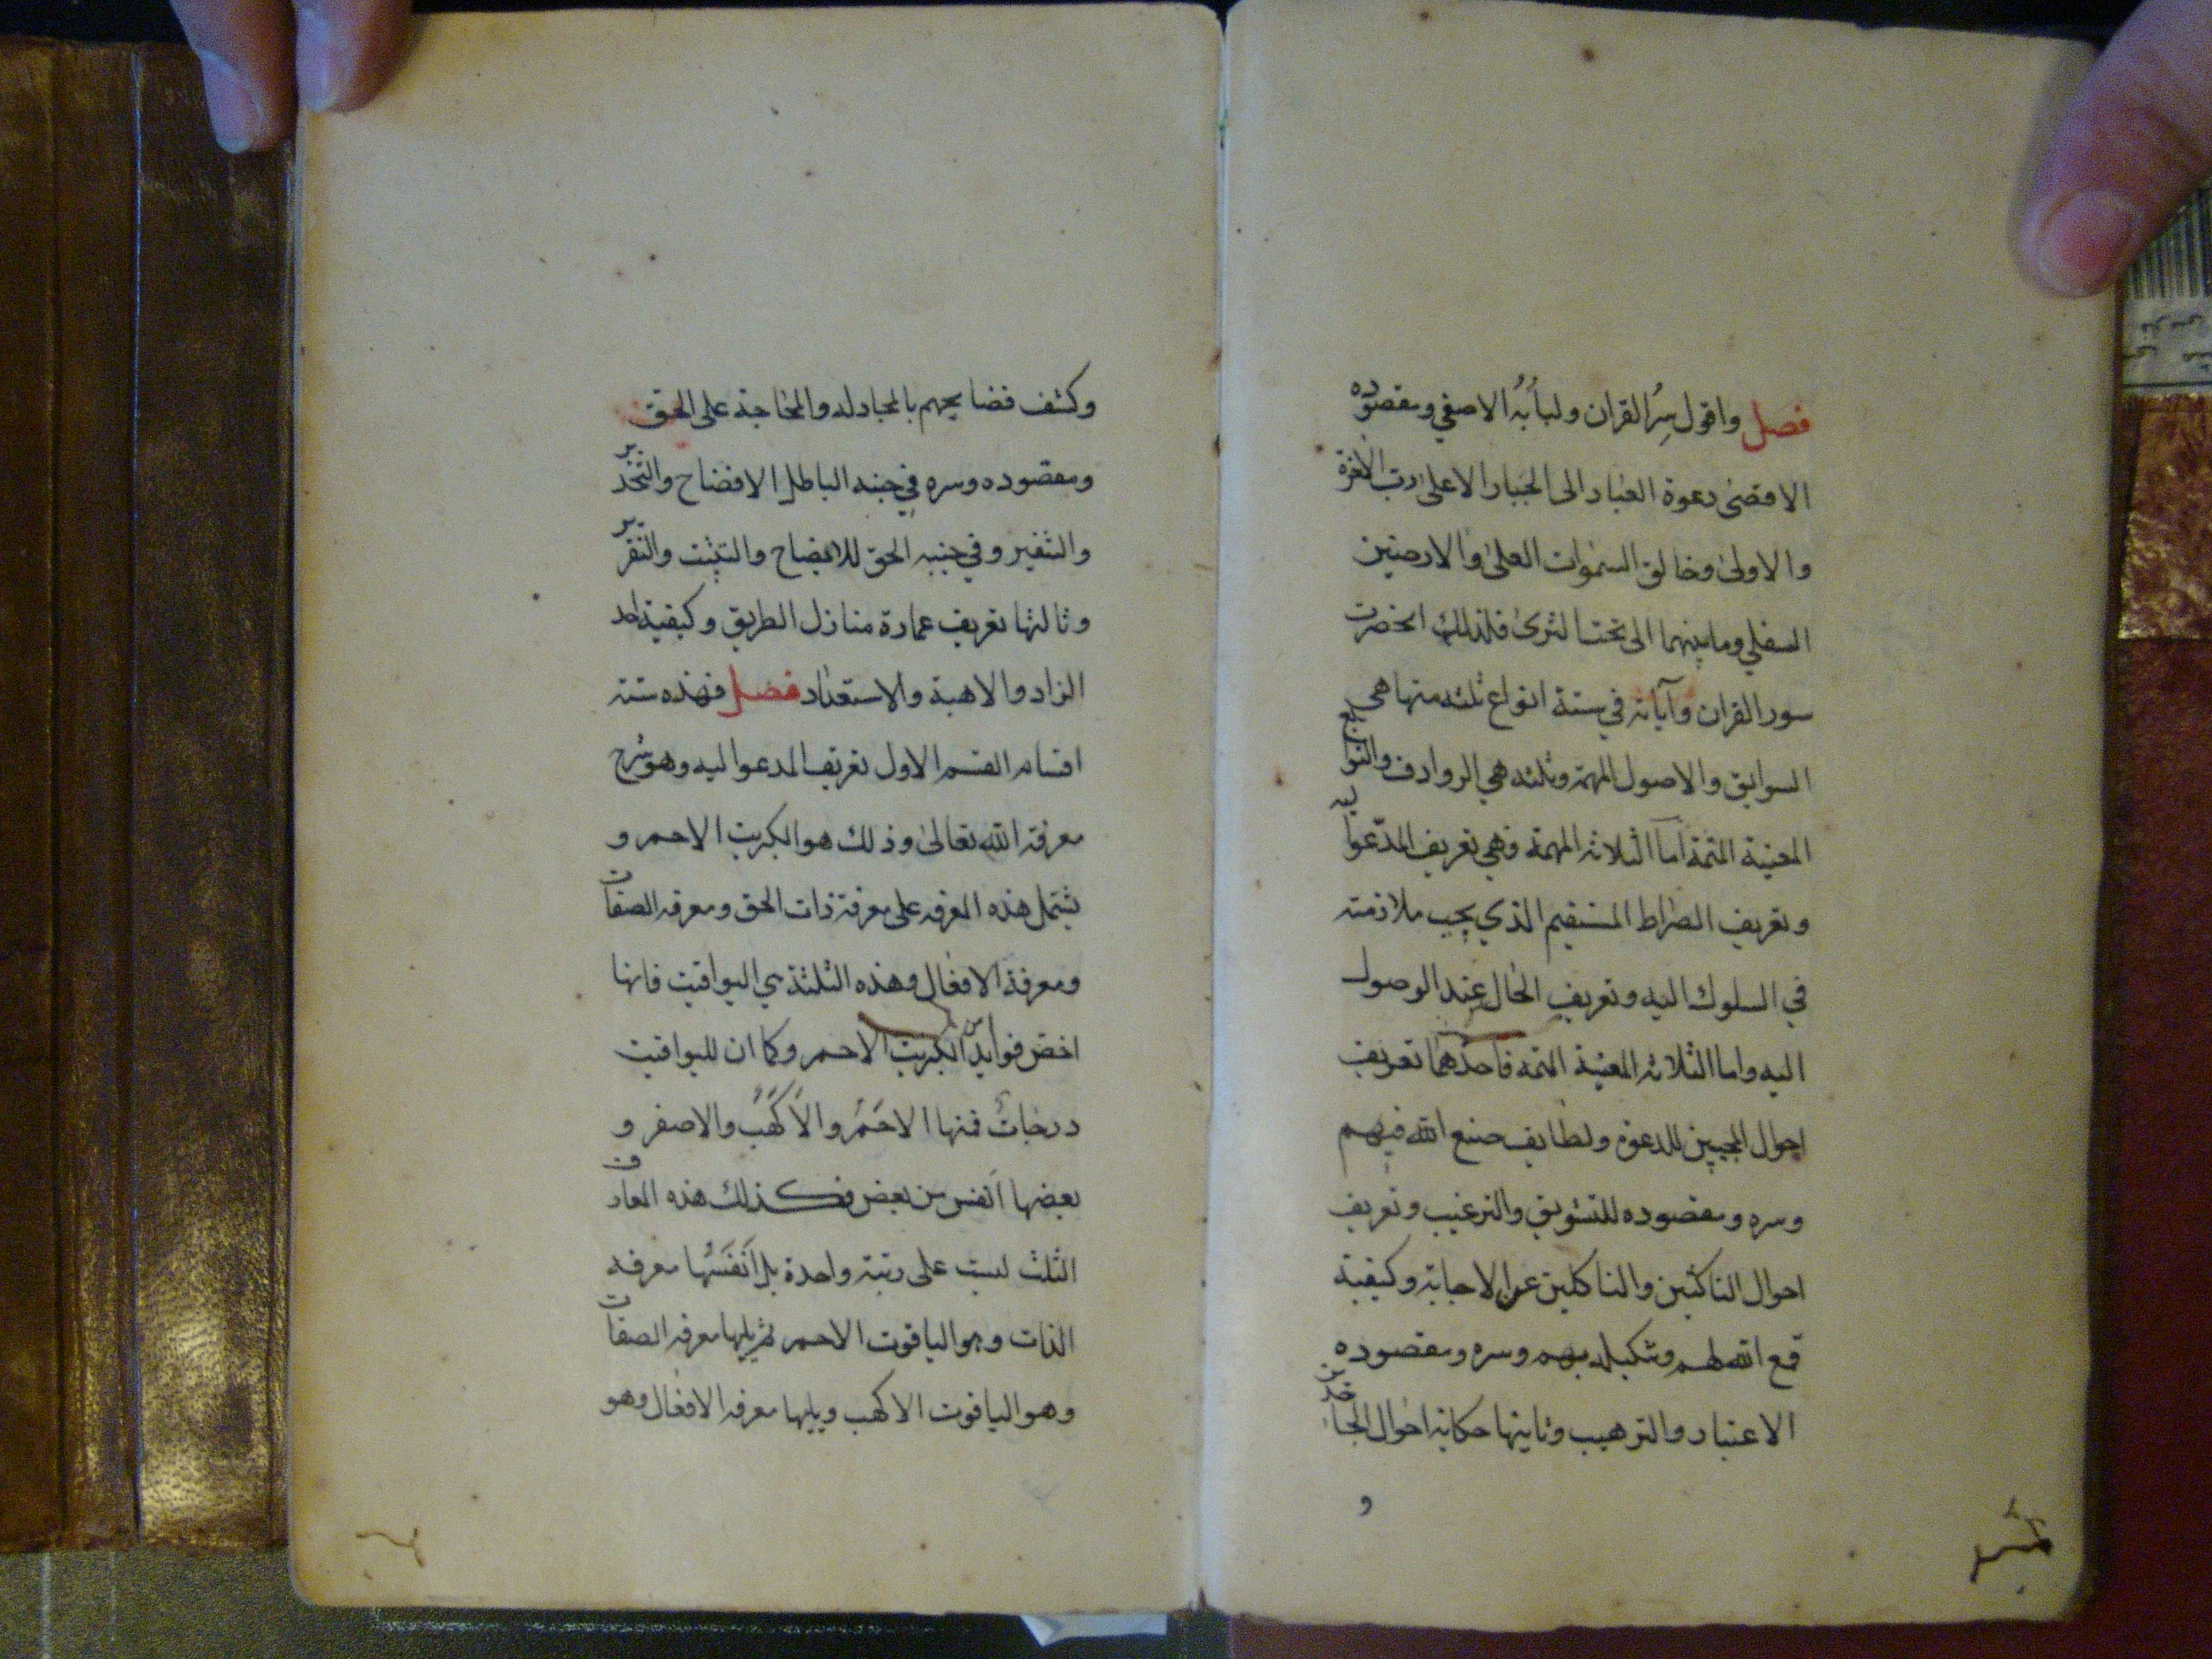 فصل واقول سِرُّ القران ولبابُهُ الاصفي ومقصوده
الاقصىٰ دعوة العباد الى الجبار الاعلى رب الاخرة
والاولىٰ وخالق السموات العلىٰ والارضين
السفلي وما بينهما الى تحت الثرىٰ فلذلك انحصرت
سور القران وآياته في ستة انواع ثلثه منها هي
السوابق والاصول المهمة وثلثه هي الروادف والتوابع
المغنية المتمة اما الثلاثه المهمة فهي تعريف المدعو اليه
وتعريف الصراط المستقيم الذي يجب ملازمته
في السلوك اليه وتعريف الحال عند الوصول
اليه واما الثلاثه المغنية المتمه فاحدهما تعريف
احوال المجيبين للدعوة ولطايف صنع الله فيهم
وسره ومقصوده للتشويق والترغيب وتعريف
احوال الناكثين والناكلين عن الاجابة وكيفية
قمع الله لهم وتنكيله بهم وسره ومقصوده
الاعتبار والترهيب وثانيتها حكاية احوال الجاحدين
و
وكشف فضايحهم بالمجادله والمحاجة على الحق
ومقصوده وسره في جنبه الباطل الافضاح والتحذير
والتنفير وفي جنبه الحق للايضاح والتثبت والتقرير
وثالثها تعريف عمارة منازل الطريق وكيفية اخد
الزاد والاهبة والاستعداد فصل فهذه ستة
اقسام القسم الاول تعريف المدعو اليه وهو شرح
معرفة الله تعالىٰ وذلك هو الكبريت الاحمر و
تشتمل هذه المعرفه على معرفة ذات الحق ومعرفه الصفات
ومعرفة الافعال وهذه الثلثة هي اليواقيت فانها
اخص فوايد الكبريت الاحمر وكما ان لليواقيت
درجاتٌ فمنها الاحمَرُ والاَكهَبُ والاصفر و
بعضها اَنفس من بعض فكذلك هذه المعارف
الثلث ليست على رتبة واحدة بل اَنفَسُها معرفه
الذات وهو الياقوت الاحمر ثم يليها معرفه الصفات
وهو الياقوت الاكهب ويليها معرفه الافعال وهو